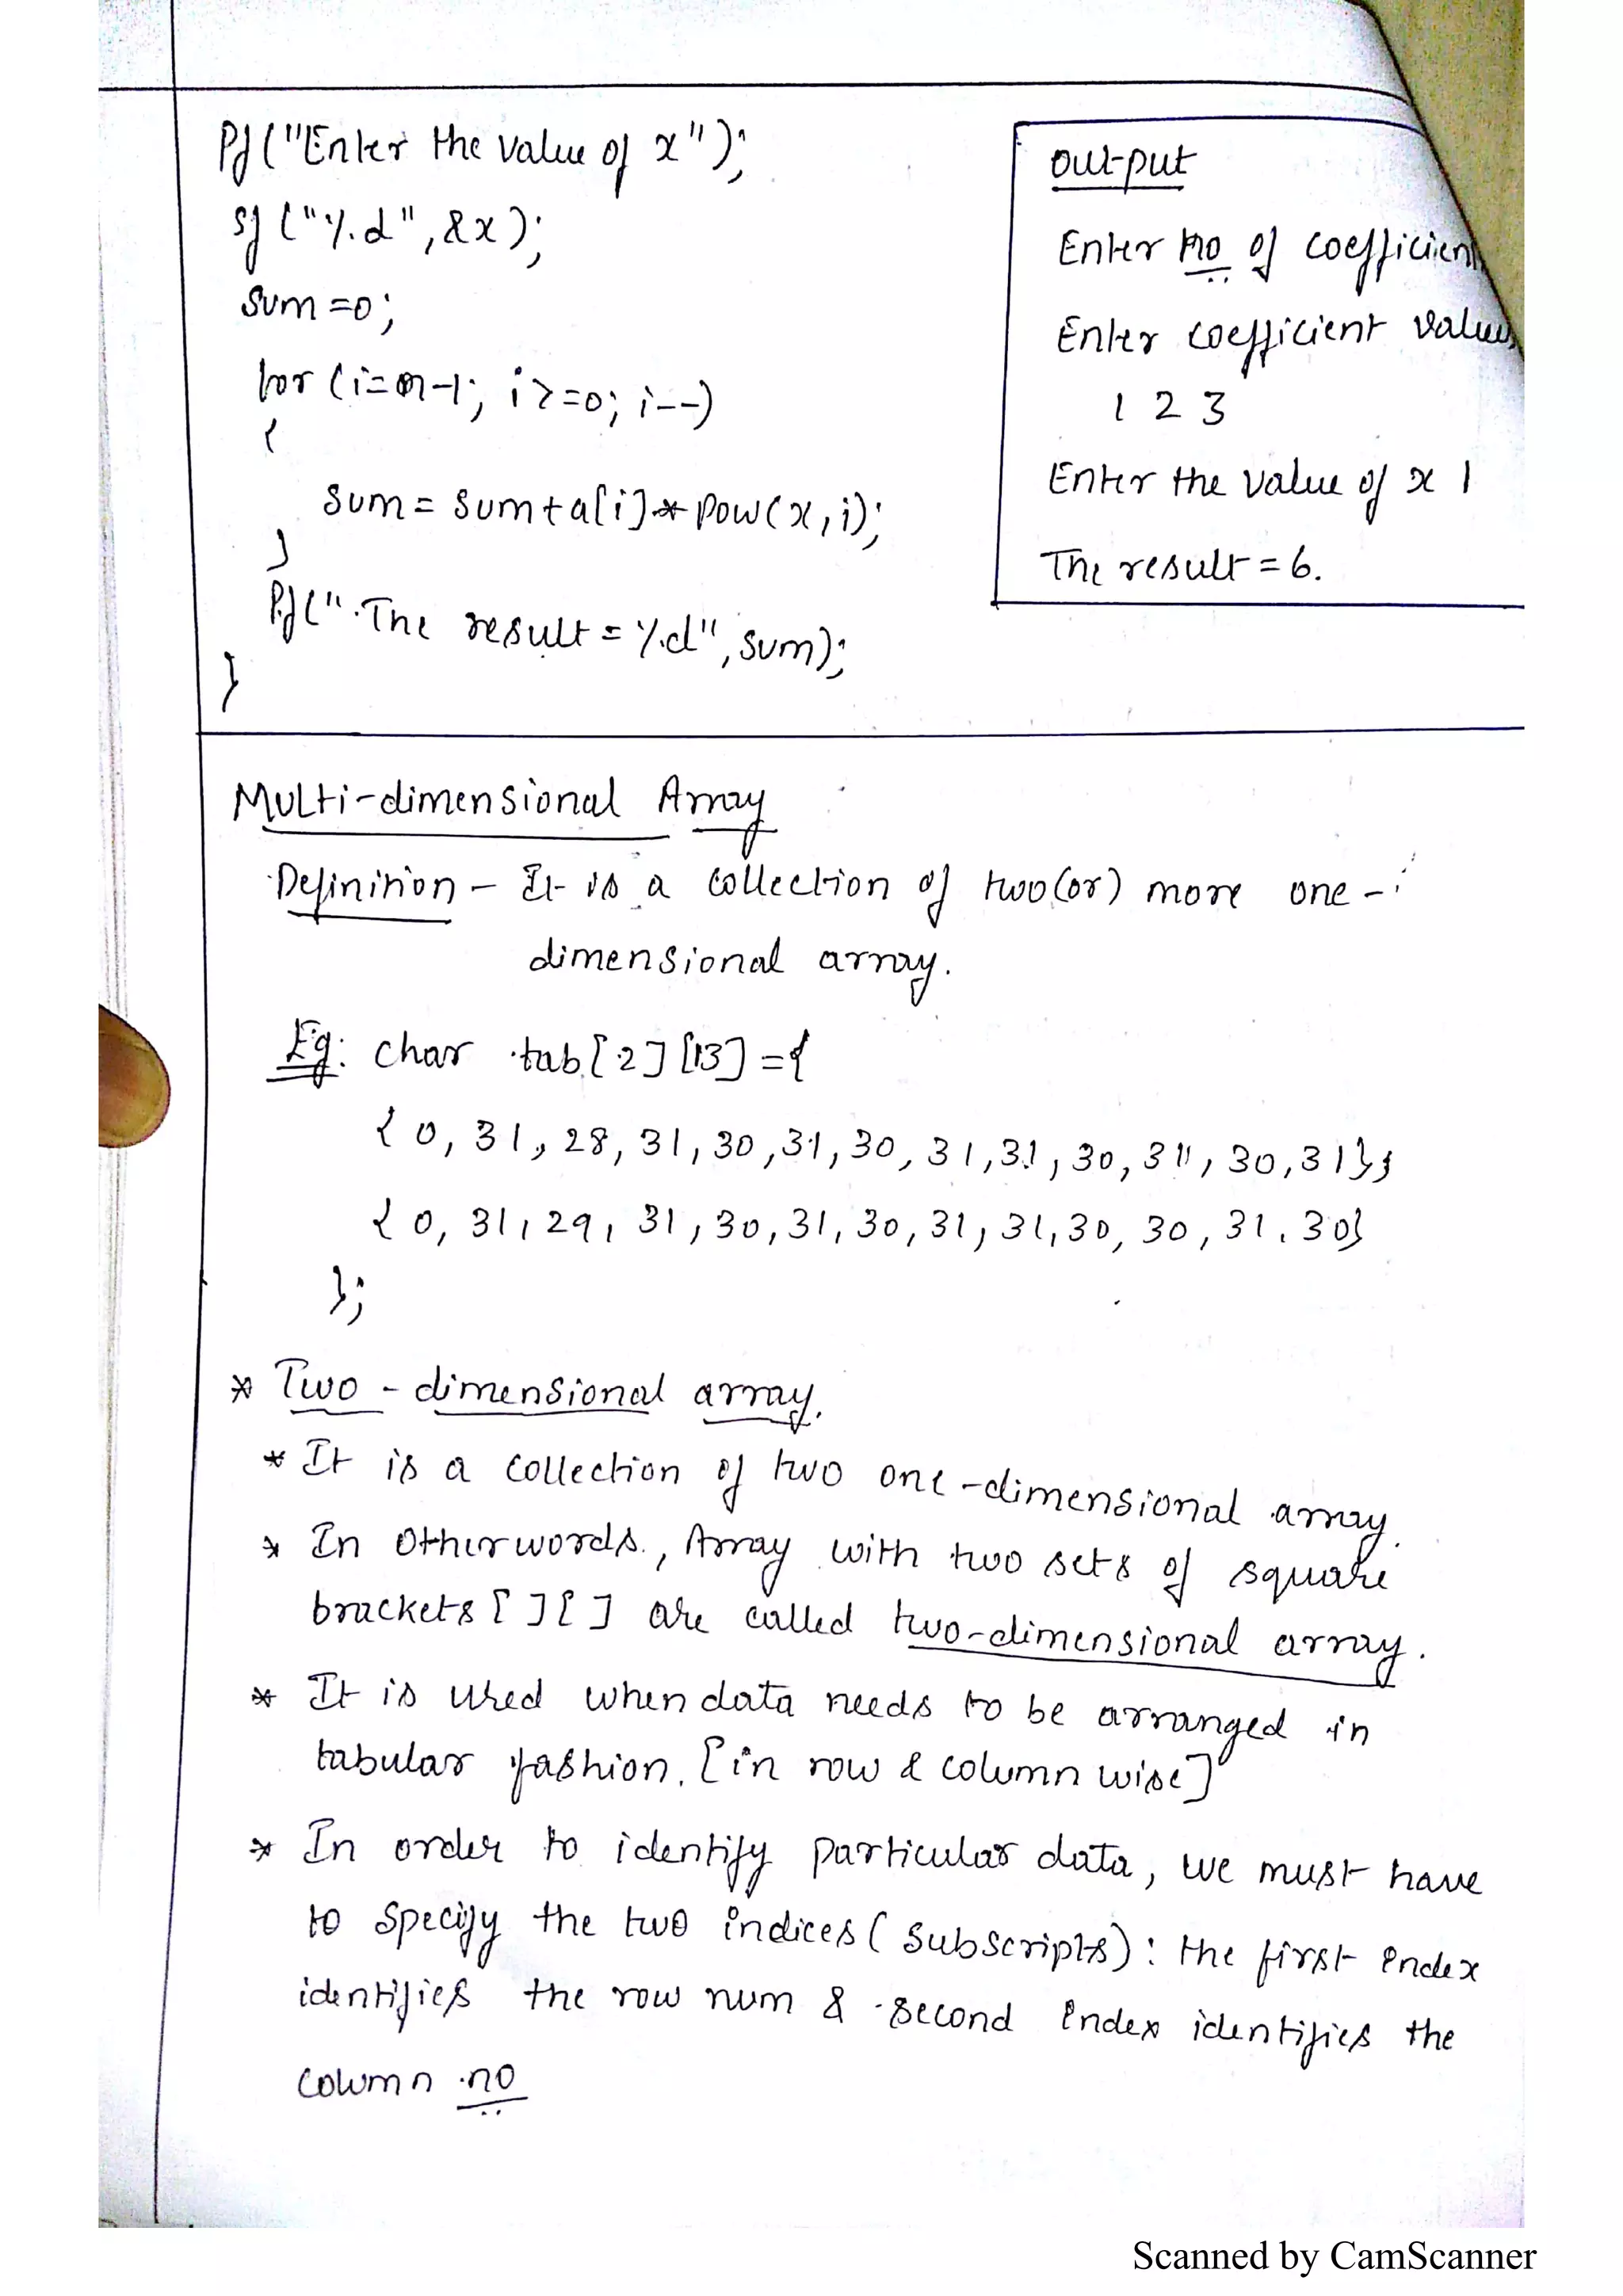 Pf("Enter the value of x");
sf("%d",&x);
sum=0;
for(i=n-1; i>=0; i--)
{
sum=sum+a[i]*pow(x,i);
}
Pf("The result=%d",sum);
}
output
Enter no of coefficient
Enter coefficient values
1 2 3
Enter the value of x 1
The result=6.
Multi-dimensional Array
Definition - It is a collection of two(or) more one-
dimensional array.
Eg: char tab[2][13]={
{0,31,28,31,30,31,30,31,31,30,31,30,31};
{0,31,29,31,30,31,30,31,31,30,30,31.30}
};
* Two-dimensional array.
* It is a collection of two one-dimensional array.
* In otherwords., Array with two sets of square
brackets[][] are called two-dimensional array.
* It is used when data needs to be arranged in
tabular fashion.[in row & column wise]
* In order to identify particular data, we must have
to specify the two indices(subscripts): the first index
identifies the row num & second index identifies the
column no
Scanned by CamScanner